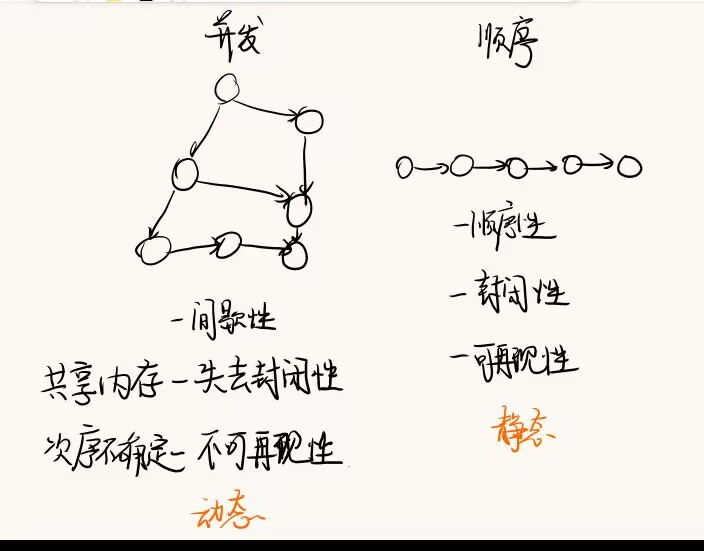 并发
- 间歇性
共享内存 - 失去封闭性
次序不确定 - 不可再现性
动态
顺序
- 顺序性
- 封闭性
- 可再现性
静态